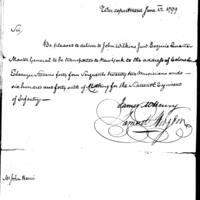 War department June 22. 1799
Sir,
Be pleased to deliver to John Wilkins junr Esquire Quarter
Master General to be transported to New York to the address of Colonel
Ebenezer Stevens forty four Sergeants twenty two musicians and
six hundred and forty suits of Clothing for the Regiment
of Infantry
James McHenry
Samuel Hodgdon
Mr John Harris